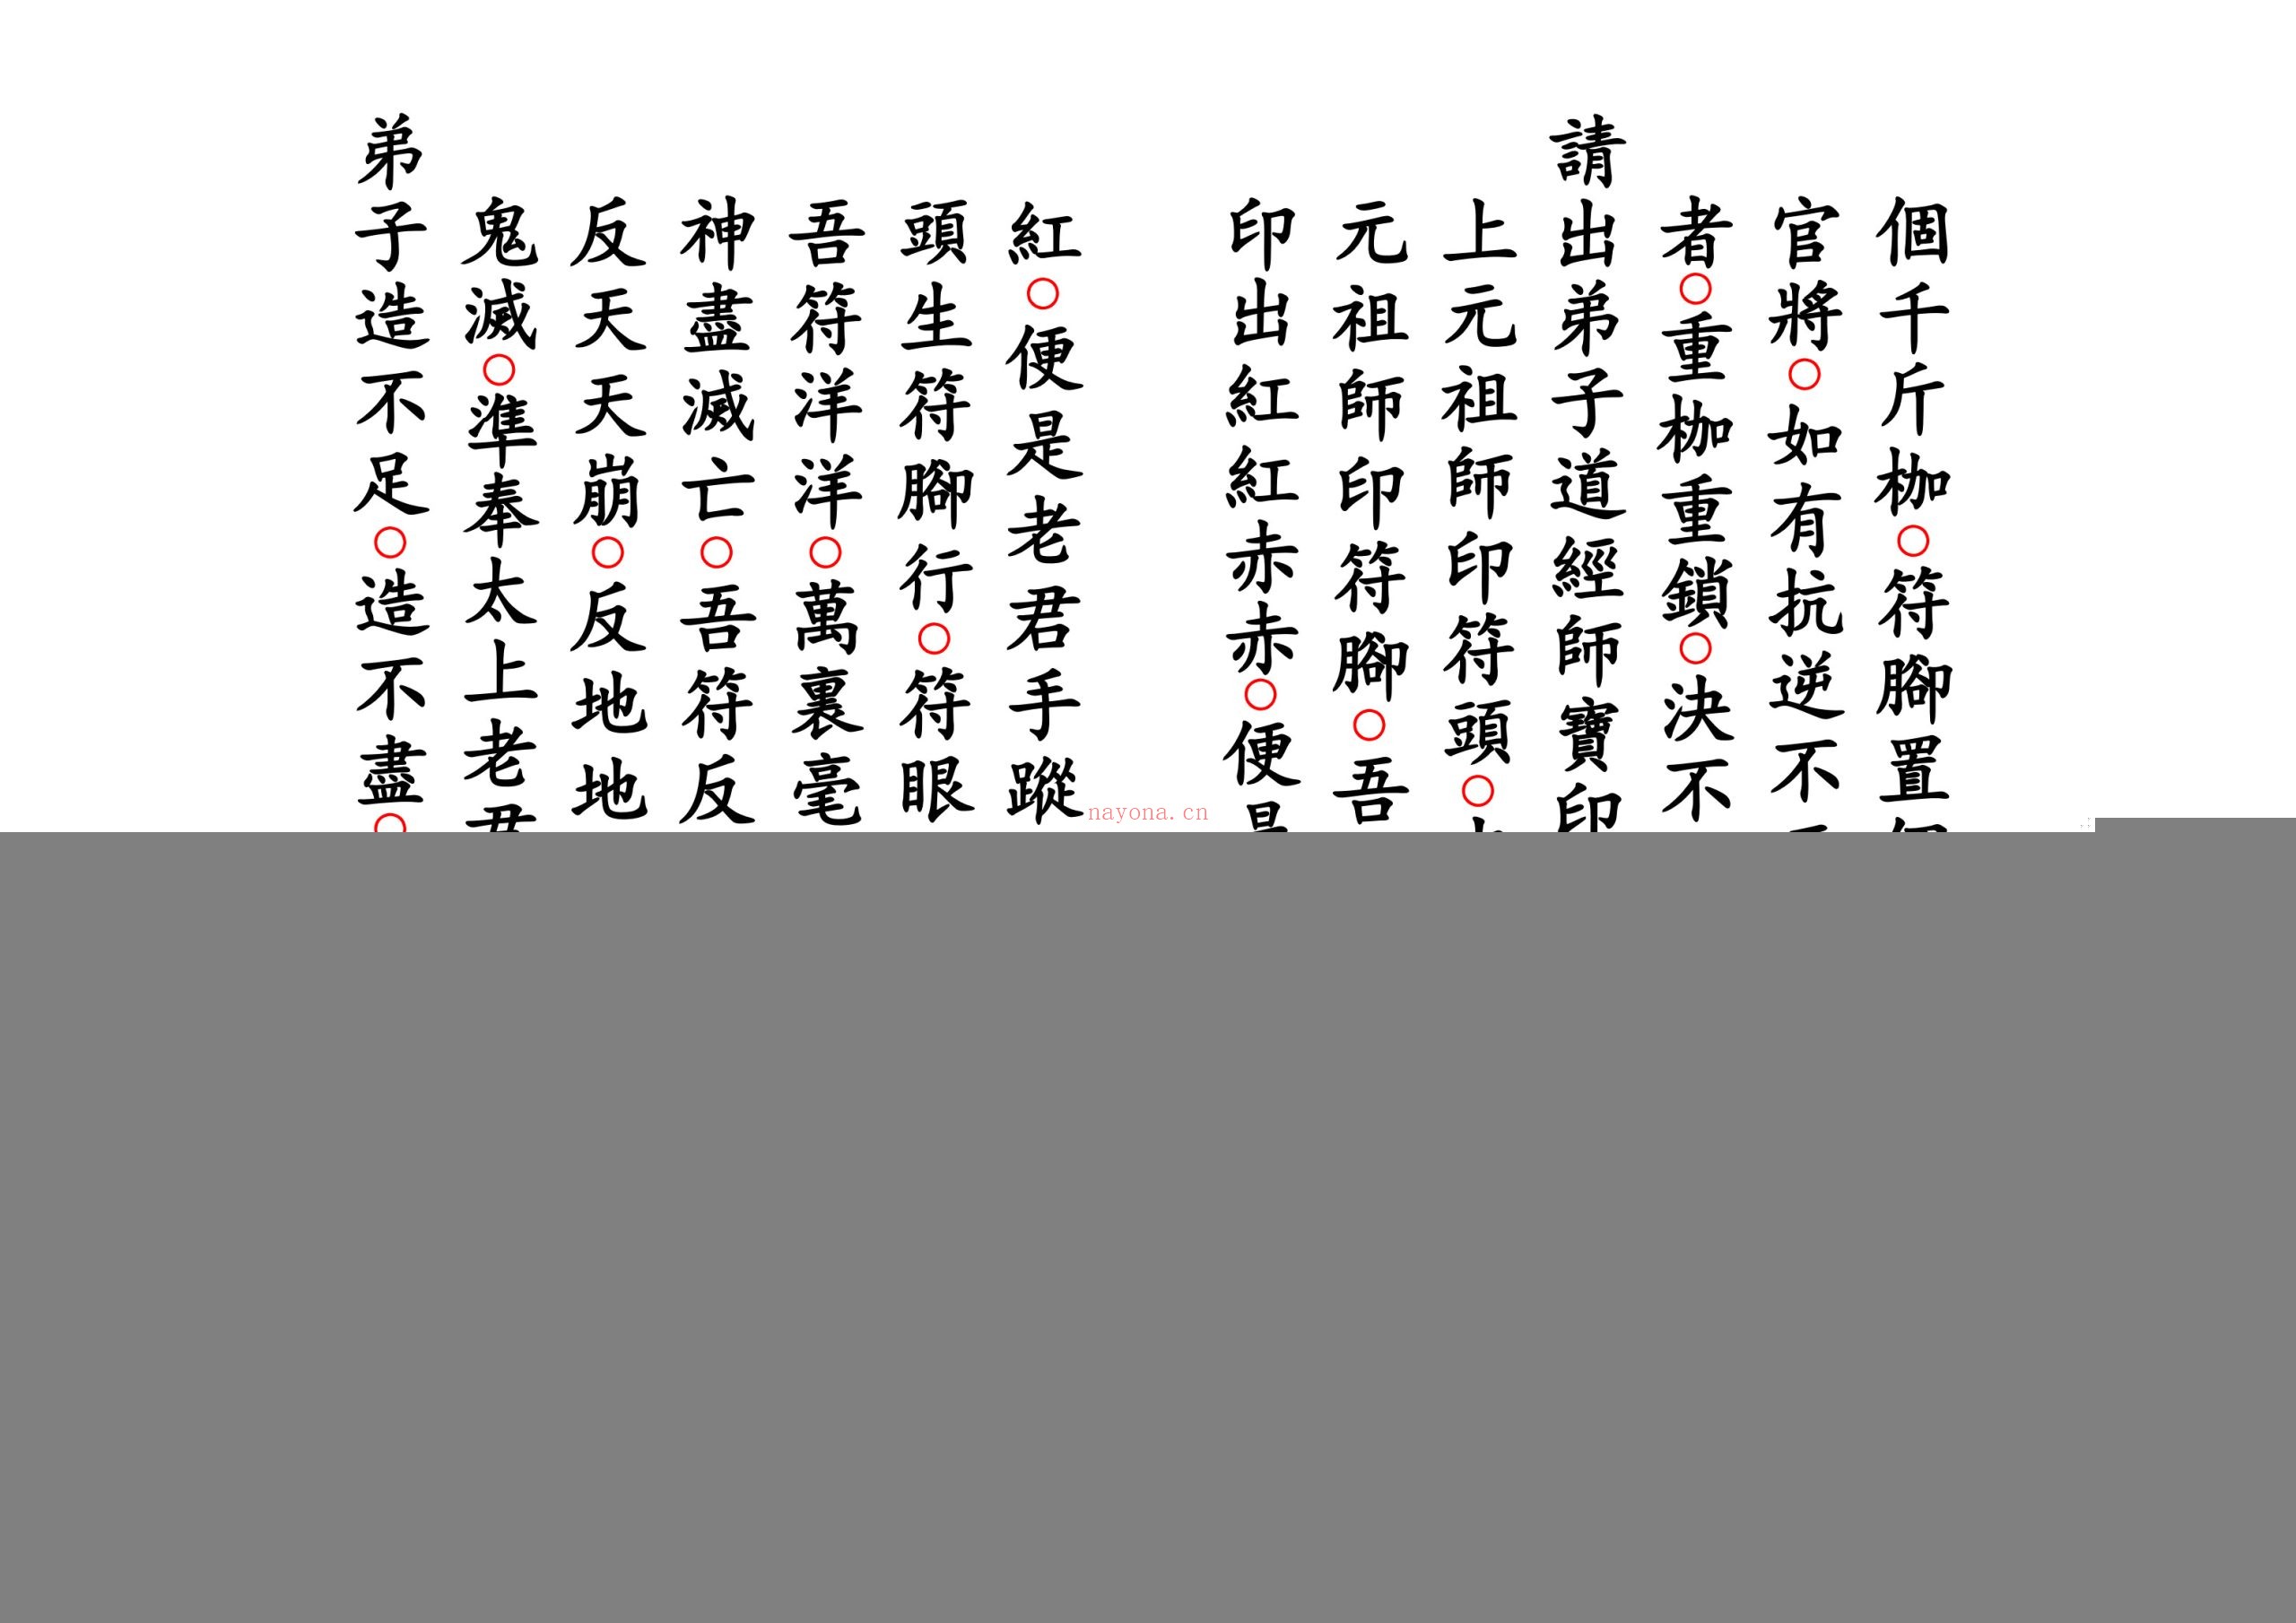 個千斤枷○符腳置
官將○如有抗逆不
者○重枷重鎖○決不
請出弟子道經師寶印
上元祖師印符頭○
元祖師印符腳○吾
印出紅紅赤赤○便
紅○便是老君手蹤
頭生符腳行○符眼
吾符洋洋○萬裏毫
神盡滅亡○吾符反
反天天崩○反地地
鬼滅○準奉太上老君
弟子造不足○造不盡○
nayona.cn